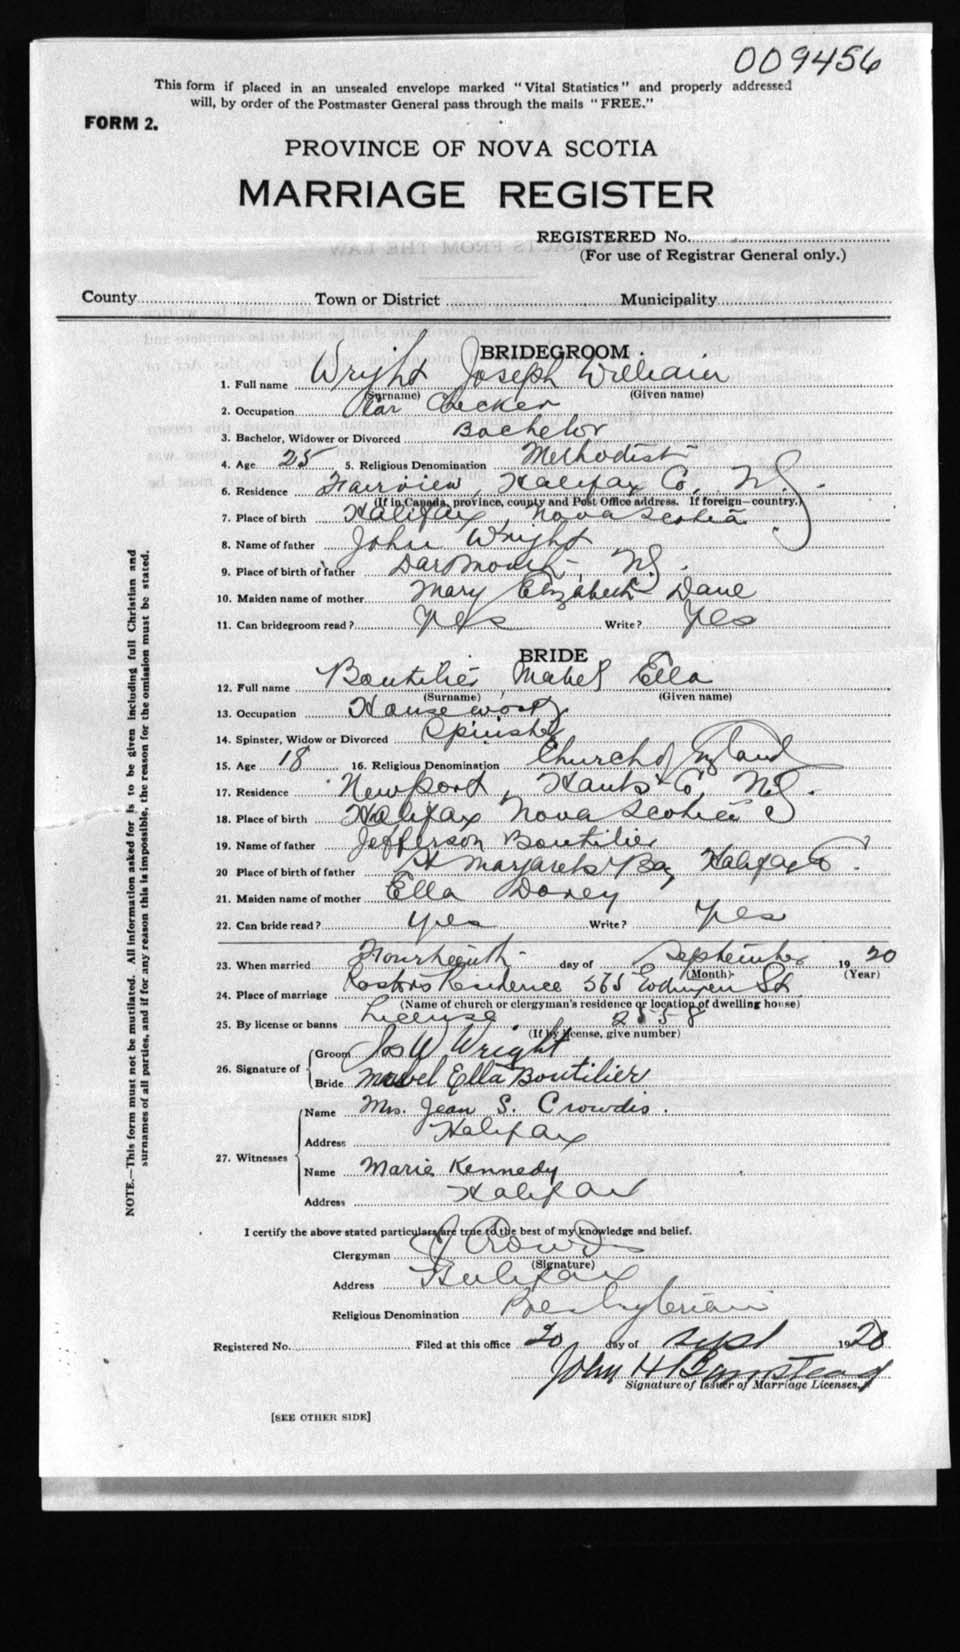 009456
This form if placed in an unsealed envelope marked "Vital Statistics" and properly addressed
will, by order of the Postmaster General pass through the mails "FREE."
FORM 2.
PROVINCE OF NOVA SCOTIA
MARRIAGE REGISTER
REGISTERED No.
(For use of Registrar General only.)
County Town or District Municipality
BRIDEGROOM
1. Full name Wright Joseph William
(Surname) (Given name)
2. Occupation Car Checker
3. Bachelor, Widower or Divorced Bachelor
4. Age 25 5. Religious Denomination Methodist
6. Residence Fairview, Halifax Co, N.S.
(If in Canada, province, county and Post Office address. If foreign—country.)
7. Place of birth Halifax, Nova Scotia
8. Name of father John Wright
9. Place of birth of father Darmouth, N.S.
10. Maiden name of mother Mary Elizabeth Dane
11. Can bridegroom read? Yes Write? Yes
BRIDE
12. Full name Boutilier, Mabel Ella
(Surname) (Given name)
13. Occupation House work
14. Spinster, Widow or Divorced Spinster
15. Age 18 16. Religious Denomination Church of England
17. Residence Newport, Hants Co, N.S.
18. Place of birth Halifax Nova Scotia
19. Name of father Jefferson Boutilier
20 Place of birth of father St Margarets Bay Halifax Co.
21. Maiden name of mother Ella Dorey
22. Can bride read? Yes Write? Yes
23. When married Fourteenth day of September 1920
(Month) (Year)
24. Place of marriage Pastors Residence 365 St
(Name of church or clergyman's residence or location of dwelling house)
25. By license or banns License 2558
(If by license, give number)
26. Signature of Groom Jos W Wright
Bride Mabel Ella Boutilier
27. Witnesses Name Mrs. Jean S. Crowdis.
Address Halifax
Name Marie Kennedy
Address Halifax
I certify the above stated particulars are true to the best of my knowledge and belief.
Clergyman Crowdis
(Signature)
Address Halifax
Religious Denomination Presbyterian
Registered No. Filed at this office 20 day of Sept 1920
John H Barnstead
Signature of Issuer of Marriage Licenses.
[SEE OTHER SIDE]
NOTE.—This form must not be mutilated. All information asked for is to be given including full Christian and
surnames of all parties, and if for any reason this is impossible, the reason for the omission must be stated.